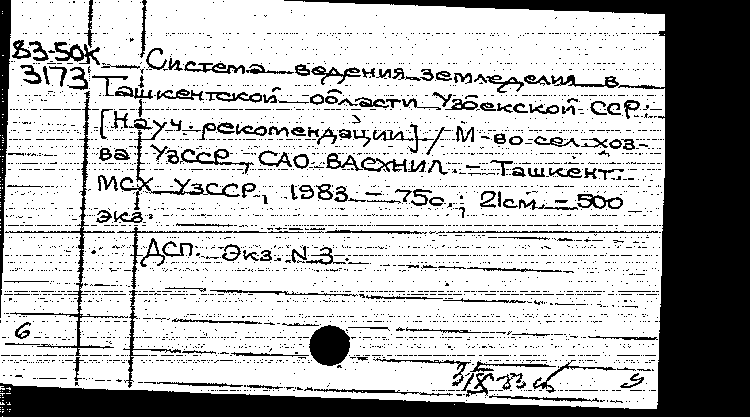 83-50К
3173
Система ведения земледелия в
Ташкентской области Узбекской ССР:
[Науч. рекомендации] / М-во сел. хоз-
ва УзССР, САО ВАСХНИЛ. - Ташкент:
МСХ УзССР, 1983. - 75с.; 21см. - 500
экз.
ДСП. Экз. N 3.
6
9